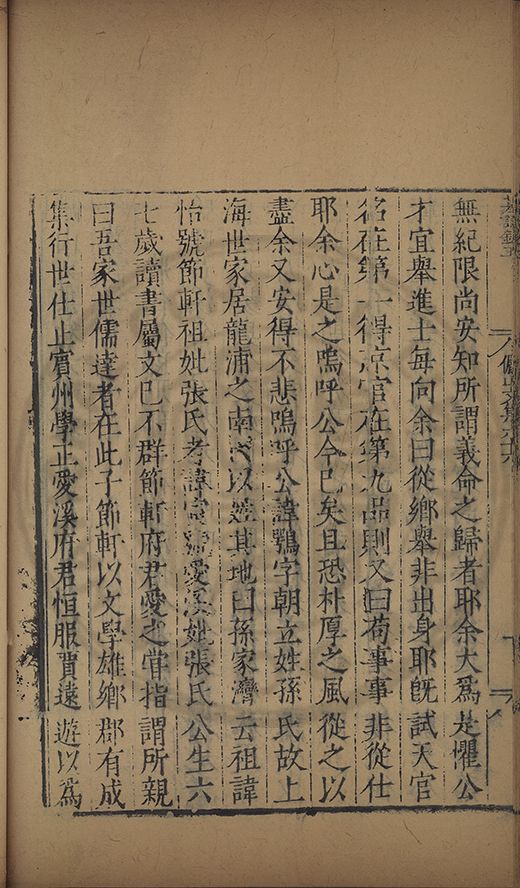 無紀限尚安知所謂義命之歸者耶余大爲是懼公
才宜舉進士每向余曰從鄉舉非出身耶旣試天官
名在第一得京官在第九品則又曰苟事事非從仕
耶余心是之嗚呼公今已矣且恐朴厚之風從之以
盡余又安得不悲嗚呼公諱鶚字朝立姓孫氏故上
海世家居龍浦之南代以姓其地曰孫家灣云祖諱
怡號節軒祖妣張氏考諱寅號愛溪妣張氏公生六
七歲讀書屬文已不群節軒府君愛之嘗指謂所親
曰吾家世儒達者在此子節軒以文學雄鄉郡有成
集行世仕止賓州學正愛溪府君恒服賈遠遊以爲